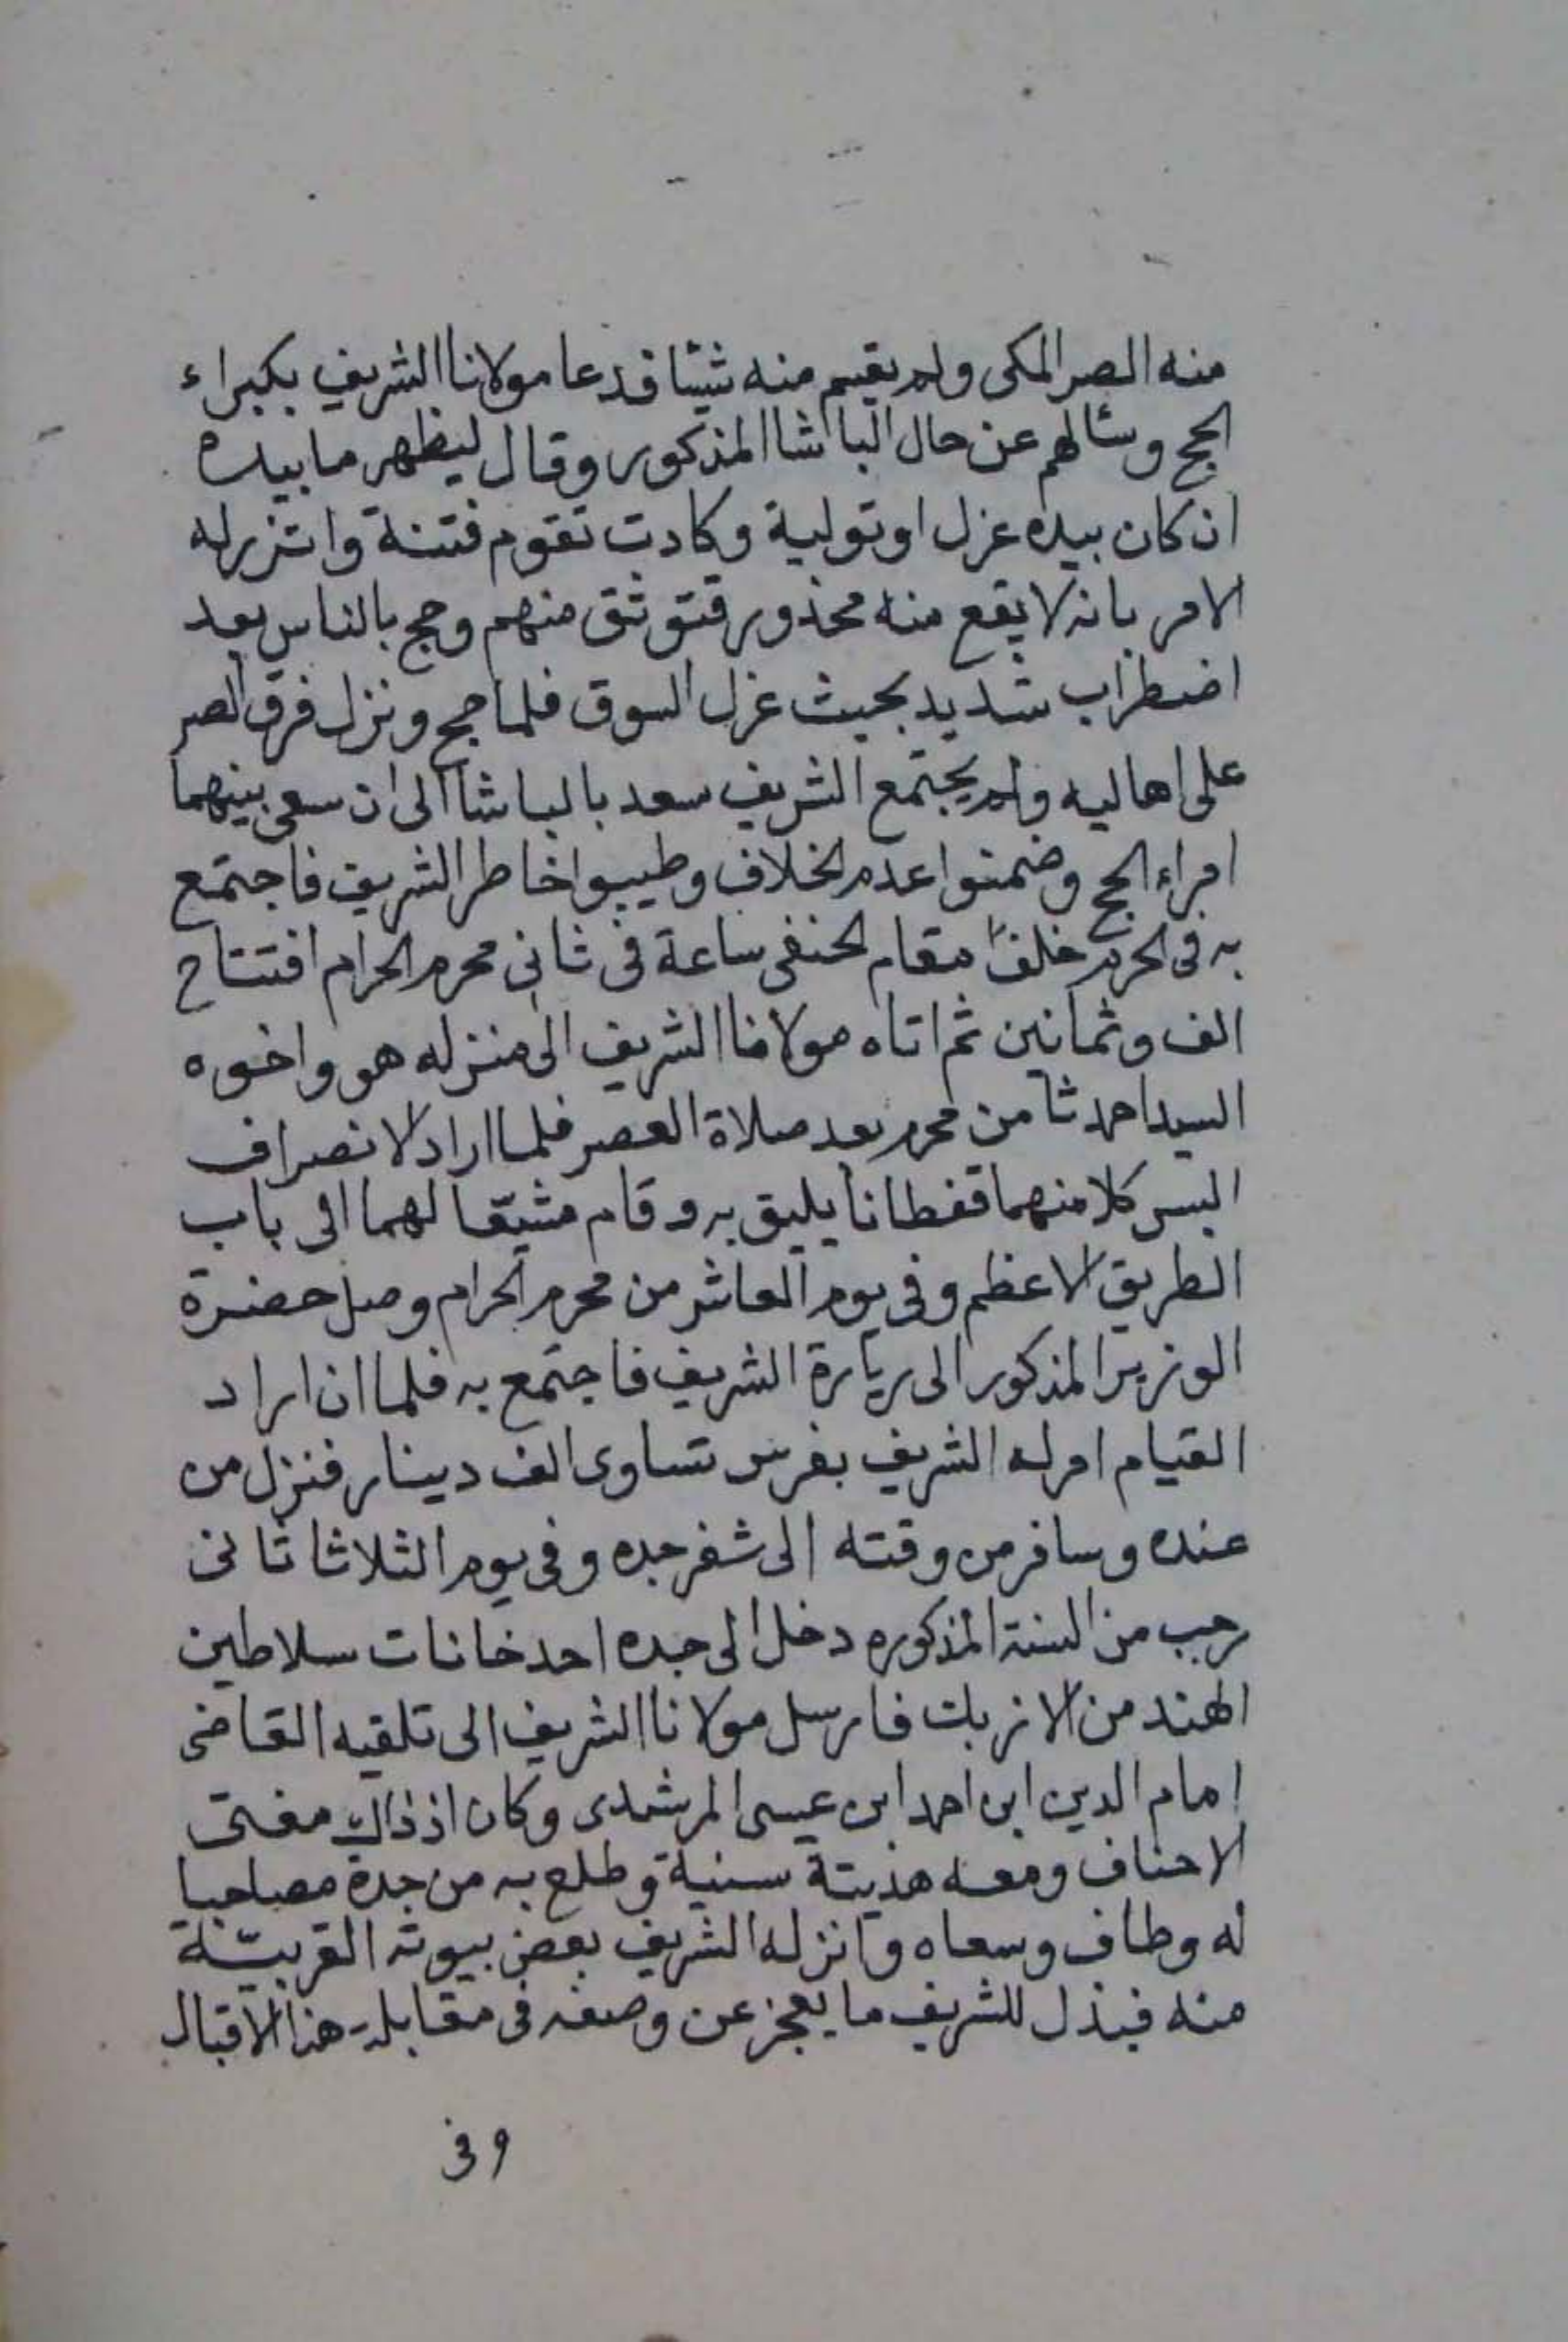 منه الصر المكى ولم يقسم منه شيئا فدعا مولانا الشريف بكبراء
الحج وسألهم عن حال الباشا المذكور وقال ليظهر ما بيده
ان كان بيده عزل او تولية وكادت تقوم فتنة والتزم له
الامر بانه لا يقع منه محذور فتوثق منهم وحج بالناس بعد
اضطراب شديد بحيث عزل السوق فلما حج ونزل فرق الصر
على اهاليه ولم يجتمع الشريف سعد بالباشا الى ان سعى بينهما
امراء الحج وضمنوا عدم الخلاف وطيبوا خاطر الشريف فاجتمع
به فى الحرم خلف مقام الحنفى ساعة فى ثانى محرم الحرام افتتاح
الف وثمانين ثم اتاه مولانا الشريف الى منزله هو واخوه
السيد احمد ثامن محرم بعد صلاة العصر فلما اراد الانصراف
البس كلا منهما قفطانا يليق به وقام مشيّعا لهما الى باب
الطريق الاعظم وفى يوم العاشر من محرم الحرام وصل حضرة
الوزير المذكور الى زيارة الشريف فاجتمع به فلما ان اراد
القيام امر له الشريف بفرس تساوى الف دينار فنزل من
عنده وسافر من وقته الى ثغر جده وفى يوم الثلاثا ثانى
رجب من السنة المذكوره دخل الى جده احد خانات سلاطين
الهند من الازبك فارسل مولانا الشريف الى تلقيه القاضى
امام الدين ابن احمد ابن عيسى المرشدى وكان اذ ذاك مفتى
الاحناف ومعه هديتة سنية وطلع به من جدة مصاحبا
له وطاف وسعاه وانزله الشريف بعض بيوته القريبّة
منه فبذل للشريف ما يعجز عن وصفه فى مقابلة هذا الاقبال
وفى